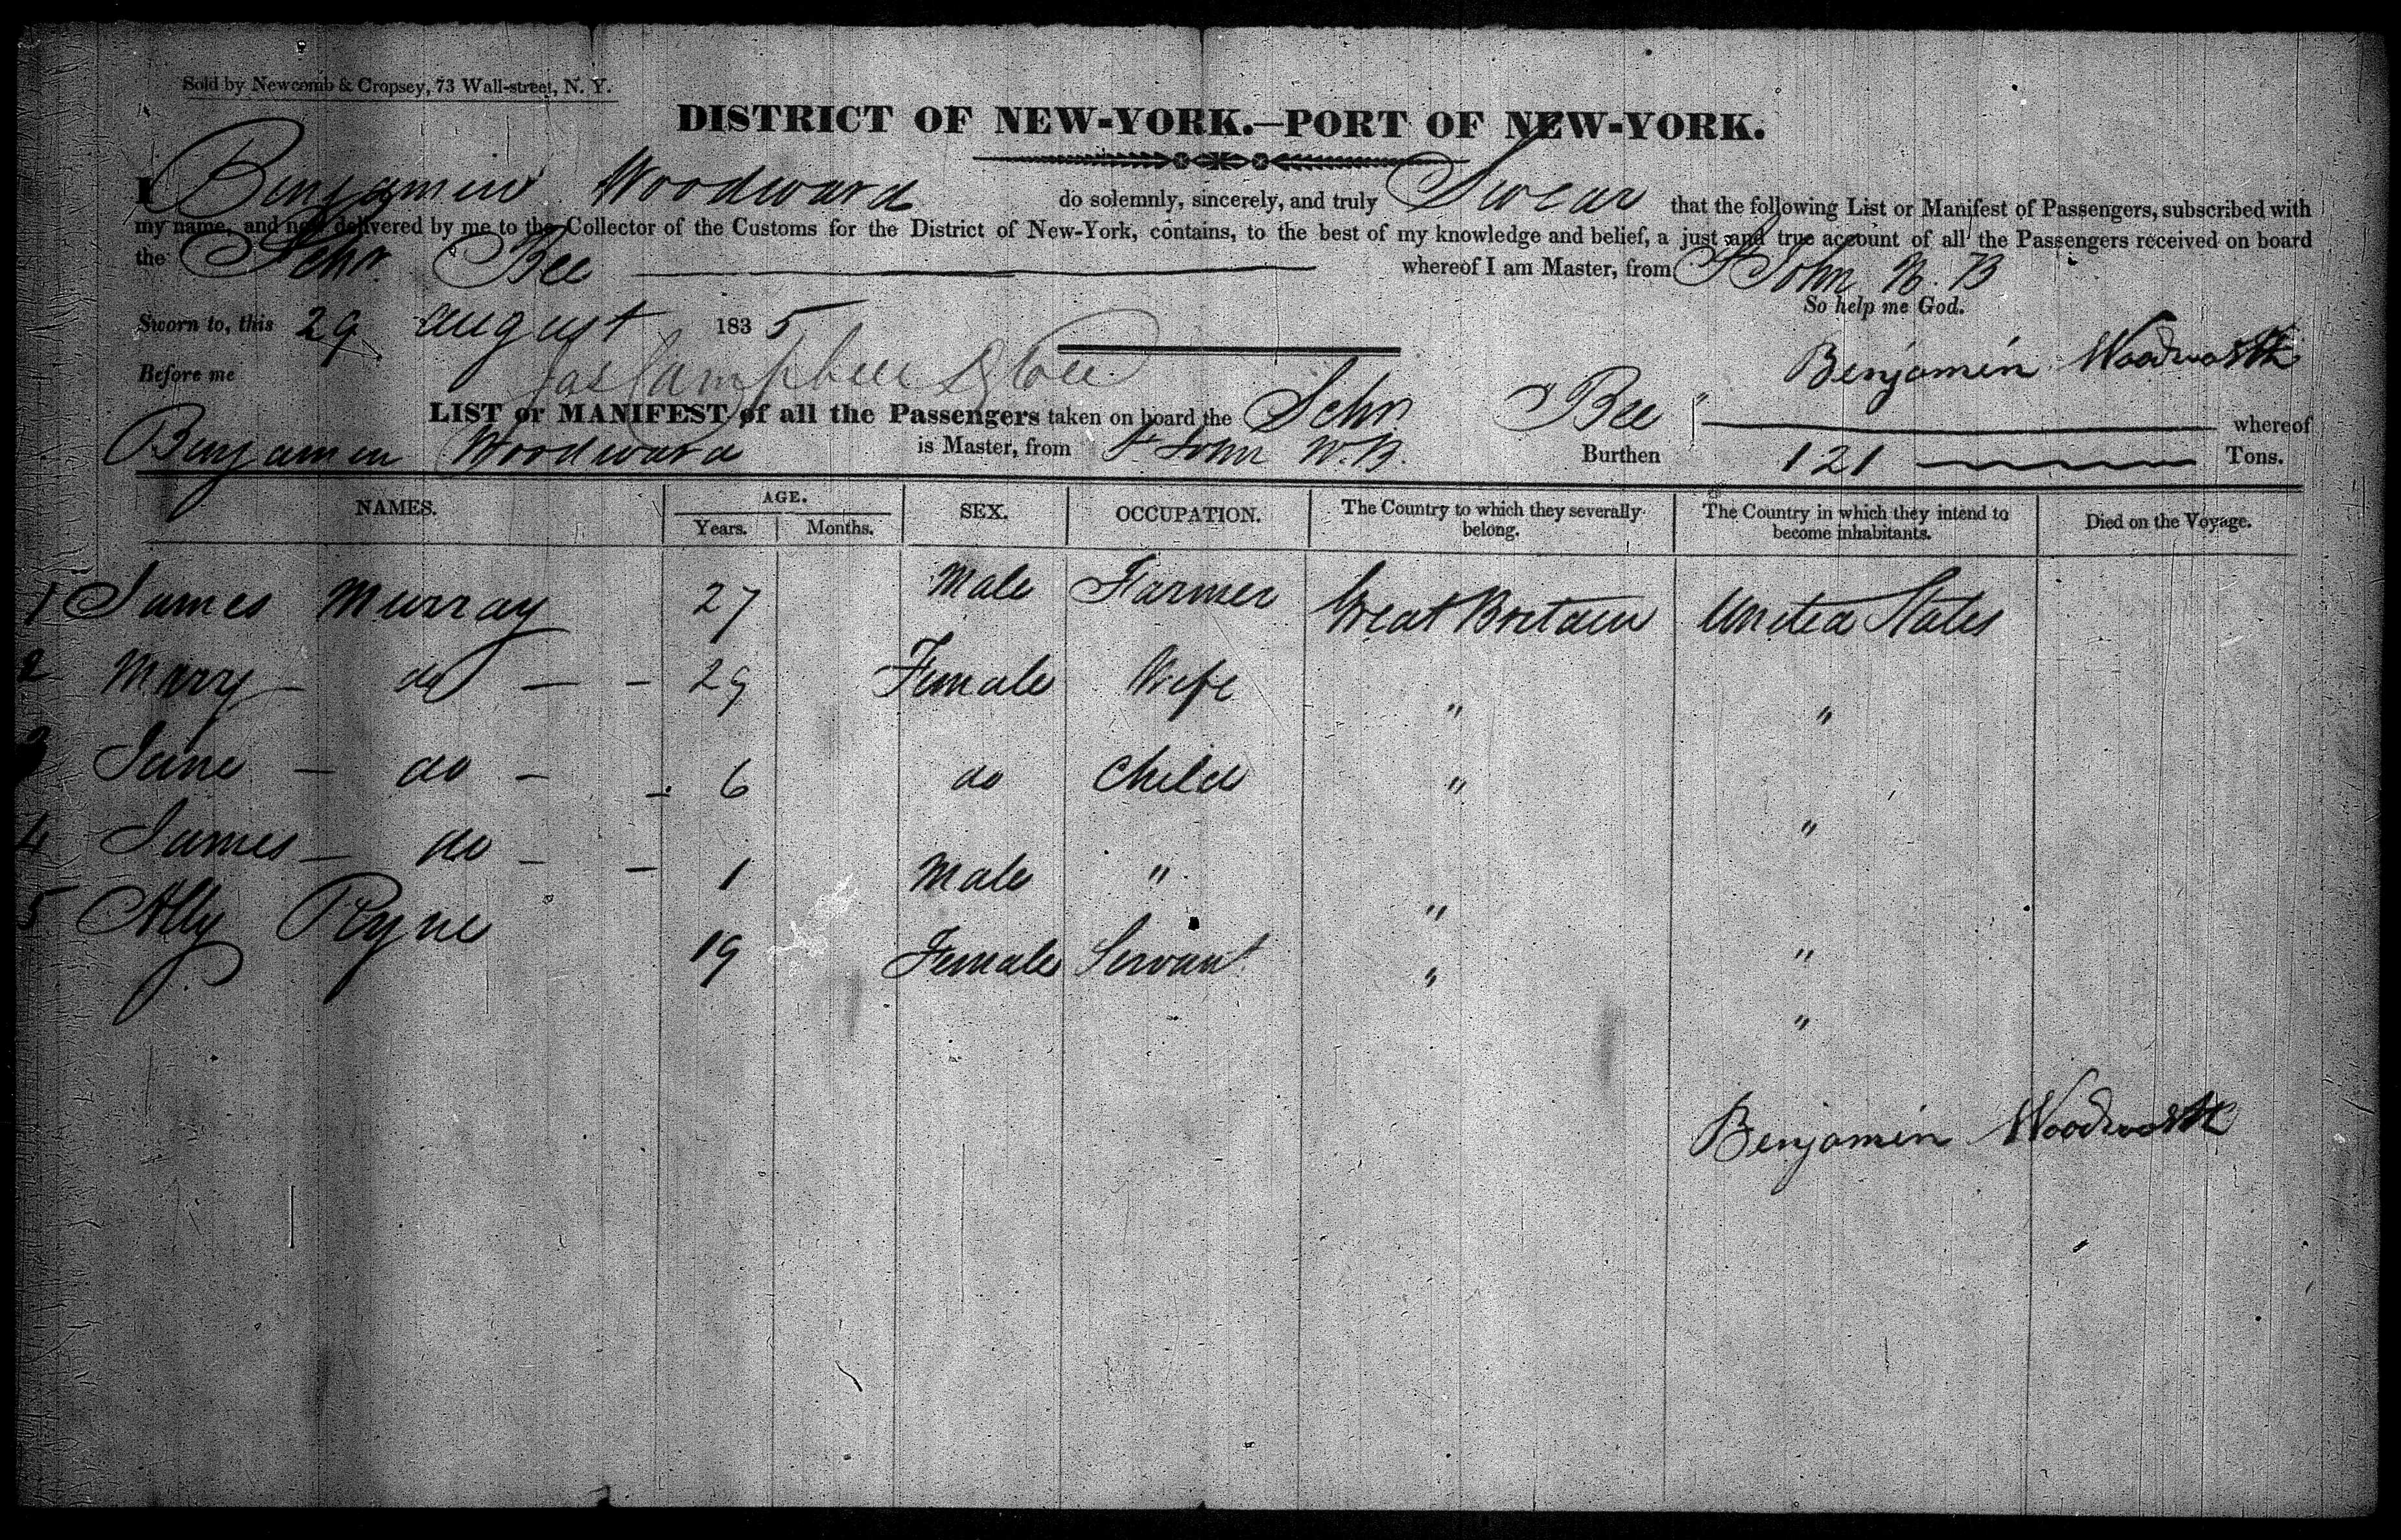 Sold by Newcomb & Cropsey, 73 Wall-street, N. Y.
DISTRICT OF NEW-YORK.—PORT OF NEW-YORK.
I Benjamin Woodward do solemnly, sincerely, and truly Swear that the following List or Manifest of Passengers, subscribed with
my name, and now delivered by me to the Collector of the Customs for the District of New-York, contains, to the best of my knowledge and belief, a just and true account of all the Passengers received on board
the Schr Bee whereof I am Master, from St John N. B
So help me God.
Sworn to, this 29 august 1835
Benjamin Woodworth
Before me
LIST or MANIFEST of all the Passengers taken on board the Schr Bee whereof
Benjamin Woodward is Master, from St John N.B. Burthen 121 Tons.
NAMES. AGE. Years. Months. SEX. OCCUPATION. The Country to which they severally belong. The Country in which they intend to become inhabitants. Died on the Voyage.
1 James Murray 27 Male Farmer Great Britain United States
2 Mary - do - - 29 Female Wife " "
3 Jane - do - - 6 do Child " "
4 James - do - - 1 Male " " "
5 Ally Pyne 19 Female Servant " "
Benjamin Woodworth